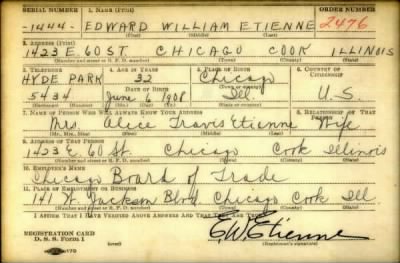 SERIAL NUMBER 1. NAME (Print) ORDER NUMBER
1444 EDWARD WILLIAM ETIENNE 2476
(First) (Middle) (Last)
2. ADDRESS (Print)
1423 E. 60 ST. CHICAGO COOK ILLINOIS
(Number and street or R. F. D. number) (Town) (County) (State)
3. TELEPHONE 4. AGE IN YEARS 5. PLACE OF BIRTH 6. COUNTRY OF CITIZENSHIP
HYDE PARK 32 Chicago
DATE OF BIRTH
5434 June 1908 Ill U.S.
(Exchange) (Number) (Mo.) (Day) (Yr.) (State or country)
7. NAME OF PERSON WHO WILL ALWAYS KNOW YOUR ADDRESS 8. RELATIONSHIP OF THAT PERSON
Mrs. Alice Travis Etienne Wife
(Mr., Mrs., Miss) (First) (Middle) (Last)
9. ADDRESS OF THAT PERSON
1423 E. 60 St. Chicago Cook Illinois
(Number and street or R. F. D. number) (Town) (County) (State)
10. EMPLOYER'S NAME
Chicago Board of Trade
11. PLACE OF EMPLOYMENT OR BUSINESS
141 W. Jackson Blvd Chicago Cook Ill
(Number and street or R. F. D. number) (Town) (County) (State)
I AFFIRM THAT I HAVE VERIFIED ABOVE ANSWERS AND THAT THEY ARE TRUE.
REGISTRATION CARD
D. S. S. Form 1 E.W. Etienne
(over) (Registrant's signature)